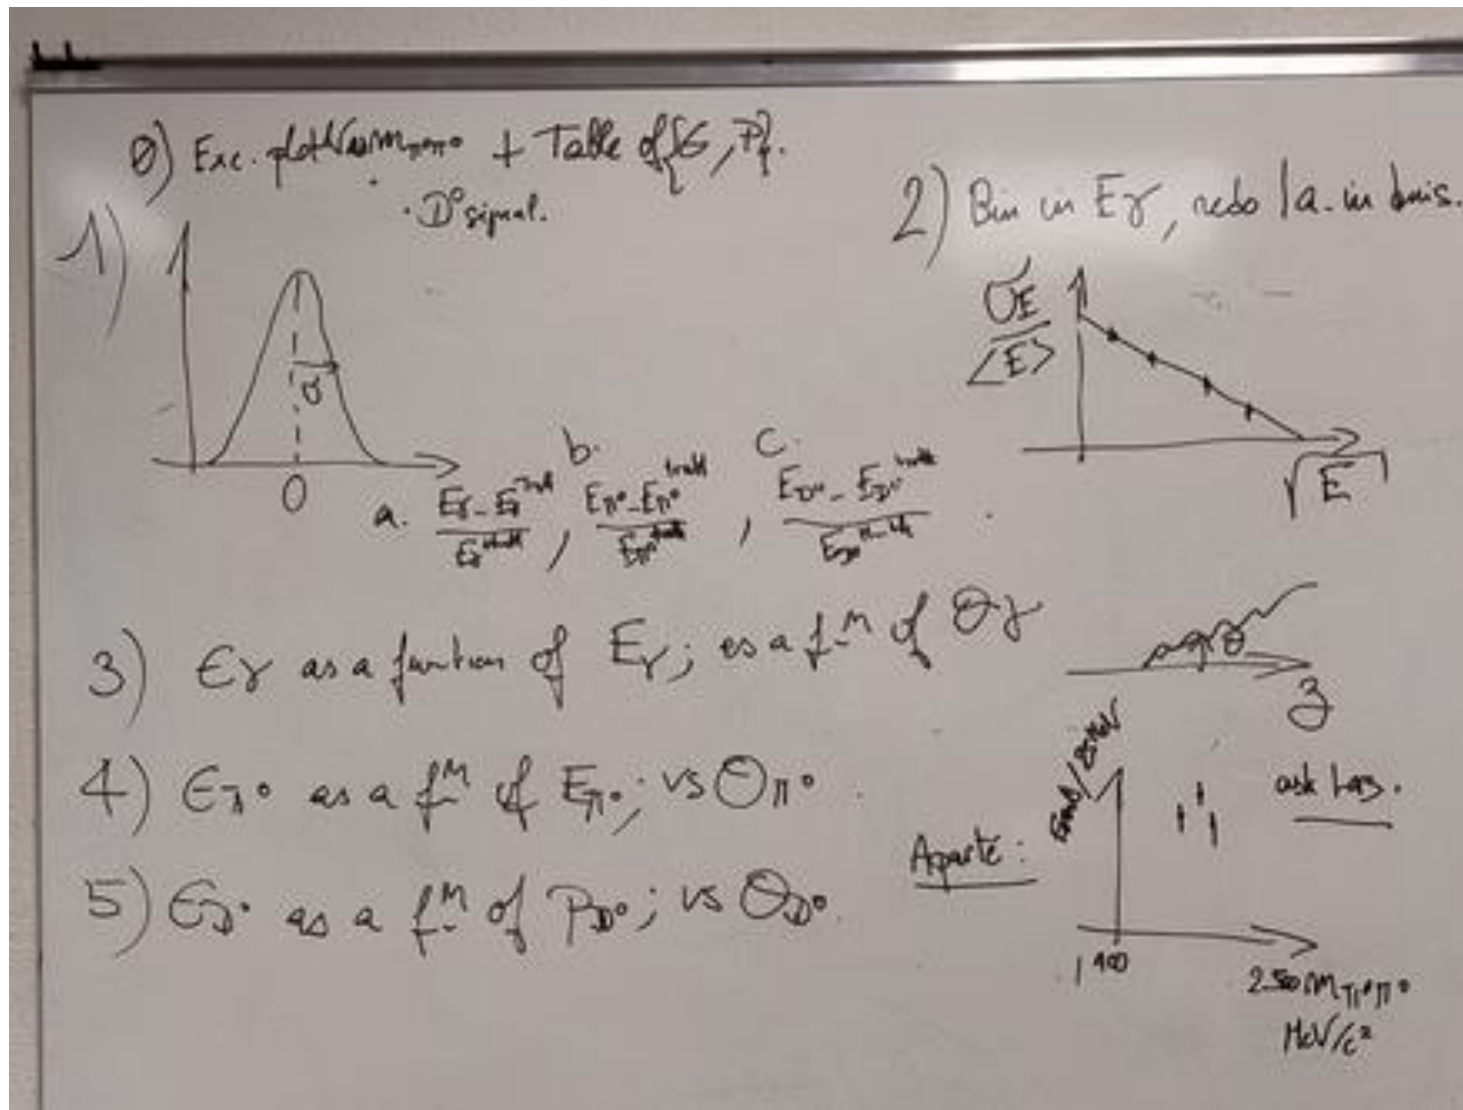 0) Exc. plot m π⁰π⁰ + Table of {ϵ, P}.
· D⁰ signal.
1)
σ
0
a. Eγ - Eγ^truth / Eγ^truth ,
b. Eπ⁰ - Eπ⁰^truth / Eπ⁰^truth ,
c. E D⁰ - E D⁰^truth / E D⁰^truth .
2) Bin in Eγ, redo 1a. in bins.
σE / <E>
√E
3) ϵγ as a function of Eγ; as a fⁿ of θγ
θ
z
4) ϵπ⁰ as a fⁿ of Eπ⁰; vs θπ⁰.
5) ϵD⁰ as a fⁿ of pD⁰; vs θD⁰.
Aparté:
/ 25 MeV
ask
1400
2500 mπ⁰π⁰
MeV/c²